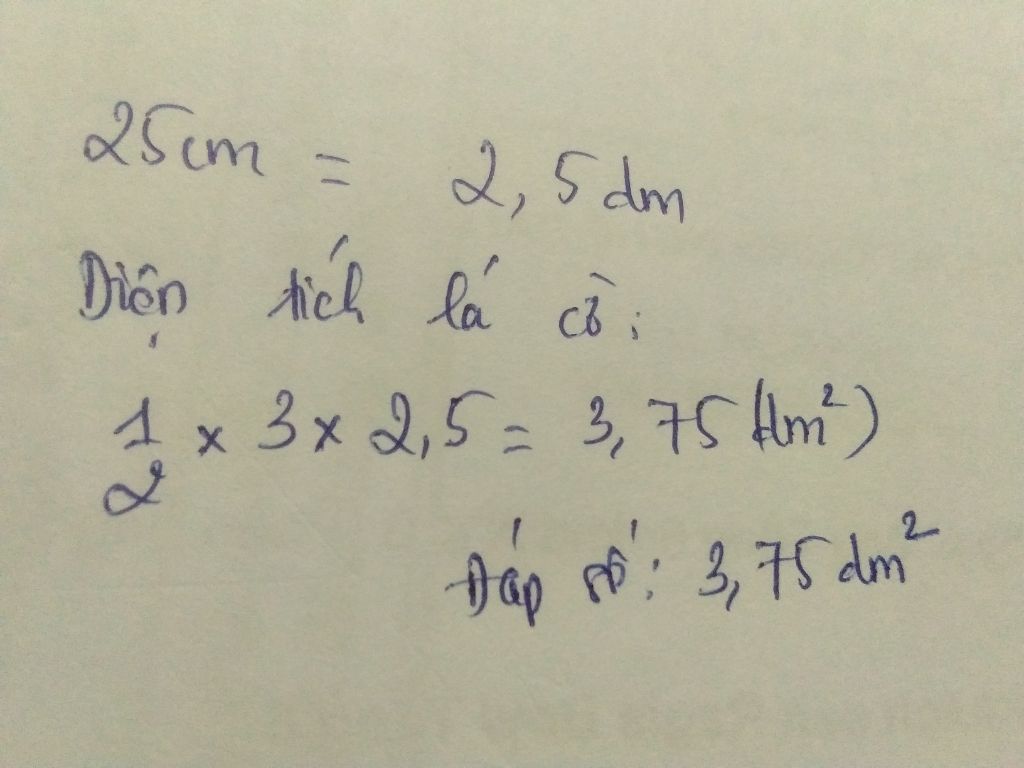 25cm = 2,5dm
Diện tích lá cờ:
1/2 x 3 x 2,5 = 3,75 (dm²)
Đáp số: 3,75 dm²